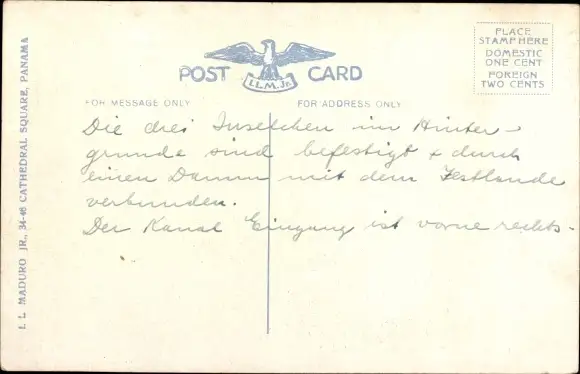 PLACE
STAMP HERE
DOMESTIC
ONE CENT
FOREIGN
TWO CENTS
POST CARD
I.L.M. Jr.
FOR MESSAGE ONLY
FOR ADDRESS ONLY
Die drei Inselchen im Hinter-
grunde sind befestigt + durch
einen Damm mit dem Festlande
verbunden.
Der Kanal Eingang ist vorne rechts.
I. L. MADURO JR., 34-46 CATHEDRAL SQUARE, PANAMA